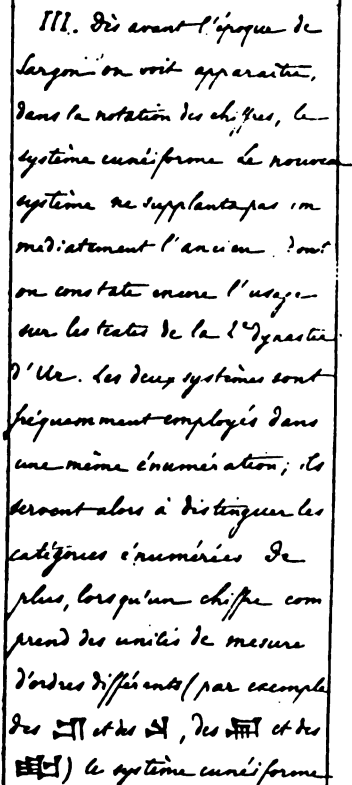 III. Dès avant l'époque de
Sargon on voit apparaître,
dans la notation des chiffres, le
système cunéiforme Le nouveau
système ne supplanta pas im
mediatement l'ancien dont
on constate encore l'usage
sur les textes de la 2e dynastie
d'Ur. Les deux systèmes sont
fréquemment employés dans
une même énumération; ils
servent alors à distinguer les
catégories énumérées De
plus, lorsqu'un chiffre com
prend des unités de mesure
d'ordres différents (par exemple
des et des , des et des
) le système cunéiforme